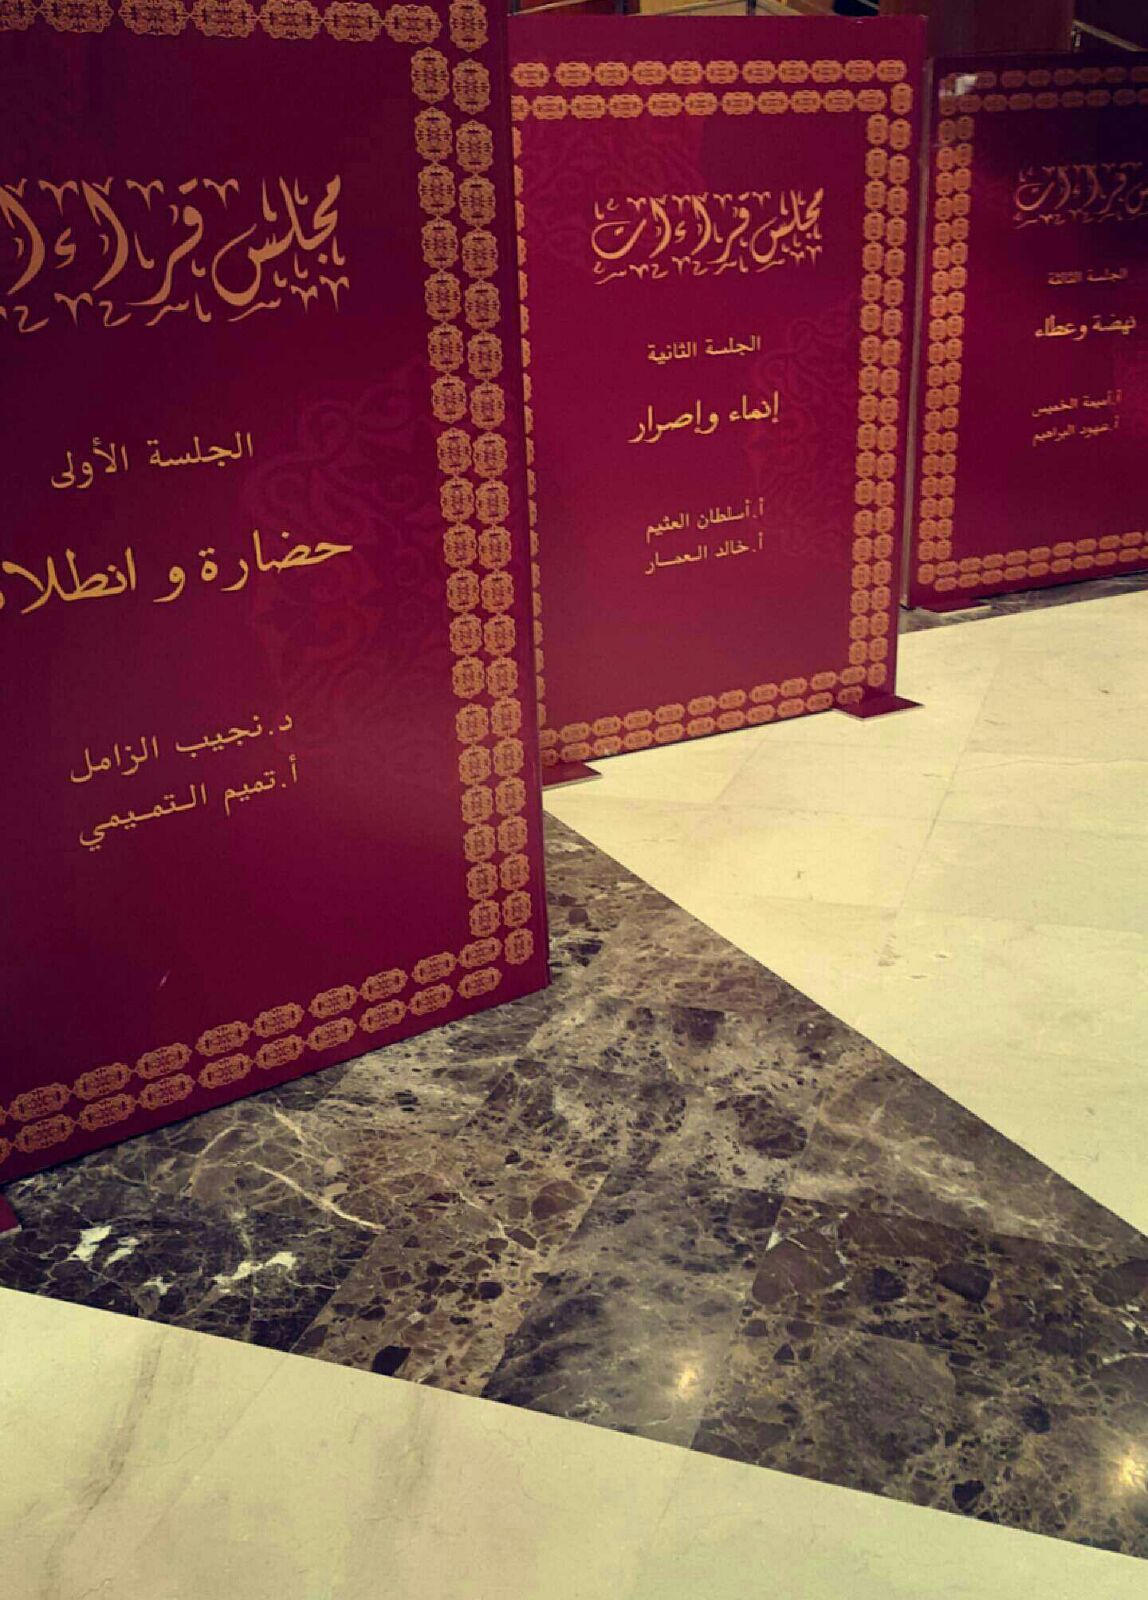 مجلس قراءات
الجلسة الأولى
حضارة و انطلا
د.نجيب الزامل
أ.تميم التميمي
مجلس قراءات
الجلسة الثانية
إنماء وإصرار
أ.أسلطان العثيم
أ.خالد العمار
مجلس قراءات
الجلسة الثالثة
نهضة وعطاء
أ.أميمة الخميس
أ.عهود البراهيم